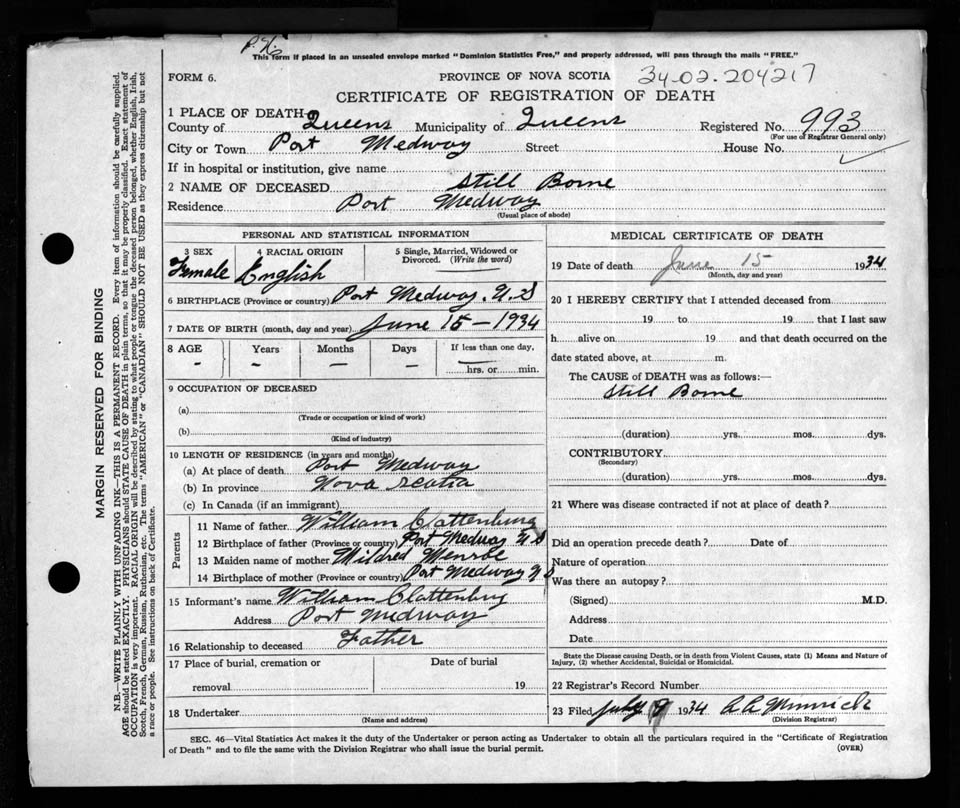 This form if placed in an unsealed envelope marked "Dominion Statistics Free," and properly addressed, will pass through the mails "FREE."
FORM 6.
PROVINCE OF NOVA SCOTIA 34-02-204217
CERTIFICATE OF REGISTRATION OF DEATH
1 PLACE OF DEATH—
County of Queens Municipality of Queens Registered No. 993
(For use of Registrar General only)
City or Town Port Medway Street House No.
If in hospital or institution, give name
2 NAME OF DECEASED Still Borne
Residence Port Medway
(Usual place of abode)
PERSONAL AND STATISTICAL INFORMATION
3 SEX 4 RACIAL ORIGIN 5 Single, Married, Widowed or Divorced. (Write the word)
Female English
6 BIRTHPLACE (Province or country) Port Medway. N.S
7 DATE OF BIRTH (month, day and year) June 15 – 1934
8 AGE Years Months Days If less than one day,
– – – – hrs. or min.
9 OCCUPATION OF DECEASED
(a)
(Trade or occupation or kind of work)
(b)
(Kind of industry)
10 LENGTH OF RESIDENCE (in years and months)
(a) At place of death Port Medway
(b) In province Nova Scotia
(c) In Canada (if an immigrant)
Parents
11 Name of father William Clattenburg
12 Birthplace of father (Province or country) Port Medway N S
13 Maiden name of mother Mildred
14 Birthplace of mother (Province or country) Port Medway N S
15 Informant's name William Clattenburg
Address Port Medway
16 Relationship to deceased Father
17 Place of burial, cremation or Date of burial
removal 19
18 Undertaker
(Name and address)
MEDICAL CERTIFICATE OF DEATH
19 Date of death June 15 1934
(Month, day and year)
20 I HEREBY CERTIFY that I attended deceased from
19 to 19 that I last saw
h alive on 19 and that death occurred on the
date stated above, at m.
The CAUSE of DEATH was as follows:—
Still Borne
(duration) yrs. mos. dys.
CONTRIBUTORY
(Secondary)
(duration) yrs. mos. dys.
21 Where was disease contracted if not at place of death?
Did an operation precede death? Date of
Nature of operation
Was there an autopay?
(Signed) M.D.
Address
Date
State the Disease causing Death, or in death from Violent Causes, state (1) Means and Nature of
Injury, (2) whether Accidental, Suicidal or Homicidal.
22 Registrar's Record Number
23 Filed July 1934
(Division Registrar)
SEC. 46—Vital Statistics Act makes it the duty of the Undertaker or person acting as Undertaker to obtain all the particulars required in the "Certificate of Registration
of Death" and to file the same with the Division Registrar who shall issue the burial permit.
(OVER)
MARGIN RESERVED FOR BINDING
N.B.—WRITE PLAINLY WITH UNFADING INK—THIS IS A PERMANENT RECORD. Every item of information should be carefully supplied.
AGE should be stated EXACTLY. PHYSICIANS should STATE CAUSE OF DEATH in plain terms, so that it may be properly classified. Exact statement of
OCCUPATION is very important. RACIAL ORIGIN will be described by stating to what people or tongue the deceased person belonged, whether English, Irish,
Scotch, French, German, Russian, Ruthenian, etc. The terms "AMERICAN" or "CANADIAN" SHOULD NOT BE USED as they express citizenship but not
a race or people. See instructions on back of Certificate.